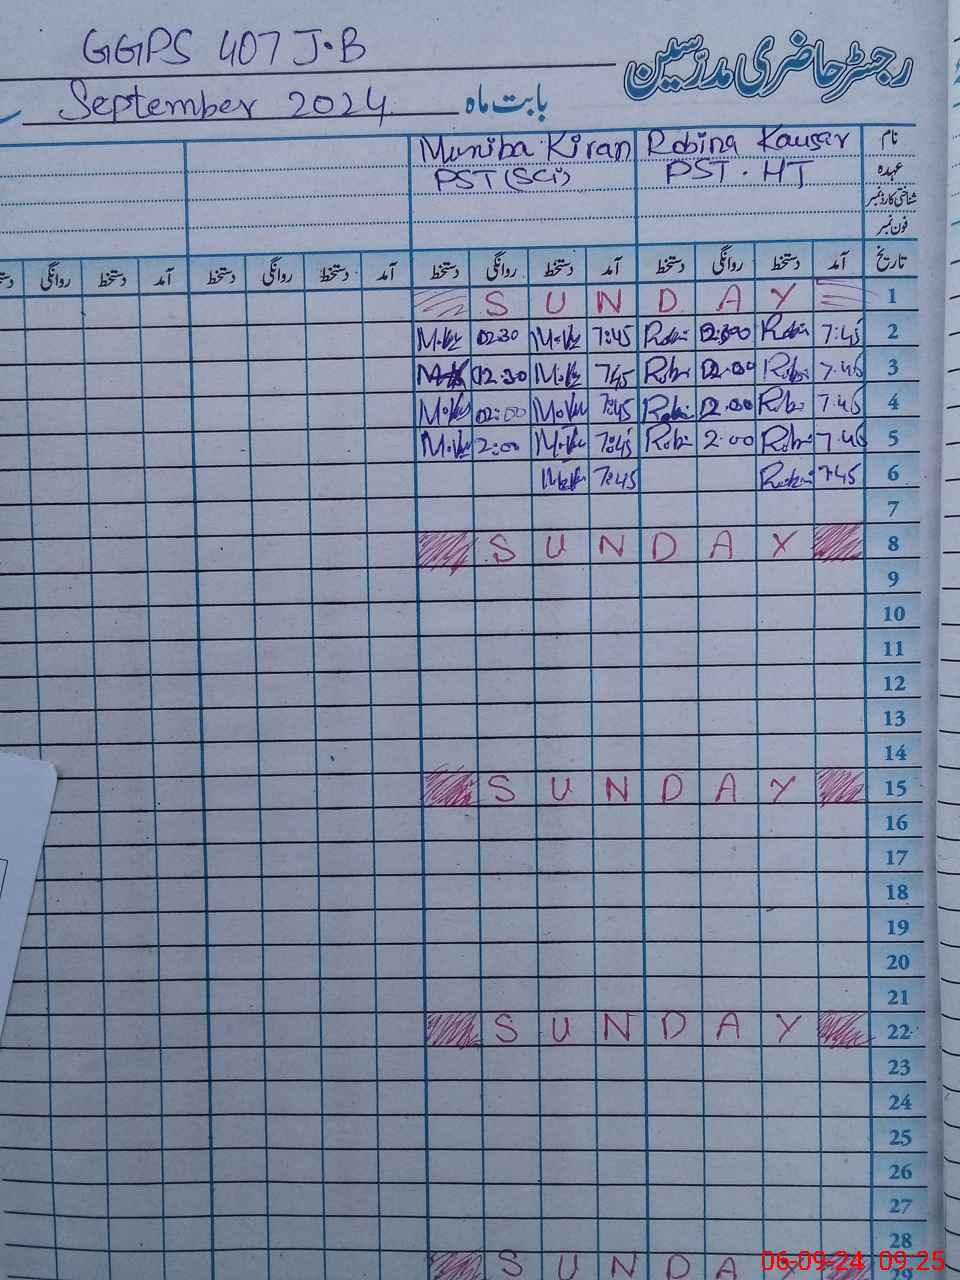 GGPS 407 J.B
رجسٹر حاضری مدرّسین
بابت ماہ September 2024
نام Robina Kausar Muniba Kiran
عہدہ PST. HT PST (Sci)
شناختی کارڈ نمبر
فون نمبر
تاریخ آمد دستخط روانگی دستخط آمد دستخط روانگی دستخط آمد دستخط روانگی دستخط آمد دستخط روانگی
S U N D A Y 1
M.K 02:30 M.K 7:45 Robi 7:45 2
02:30 M.K 745 Robi Robi 7.45 3
M.K 02:00 M.K 7:45 Robi Robi 7.45 4
M.K 2:00 M.K 7:45 Robi 2.00 Robi 7.45 5
7:45 7:45 6
7
S U N D A Y 8
9
10
11
12
13
14
S U N D A Y 15
16
17
18
19
20
21
S U N D A Y 22
23
24
25
26
27
28
S U N D A Y 29
06-09-24 09:25